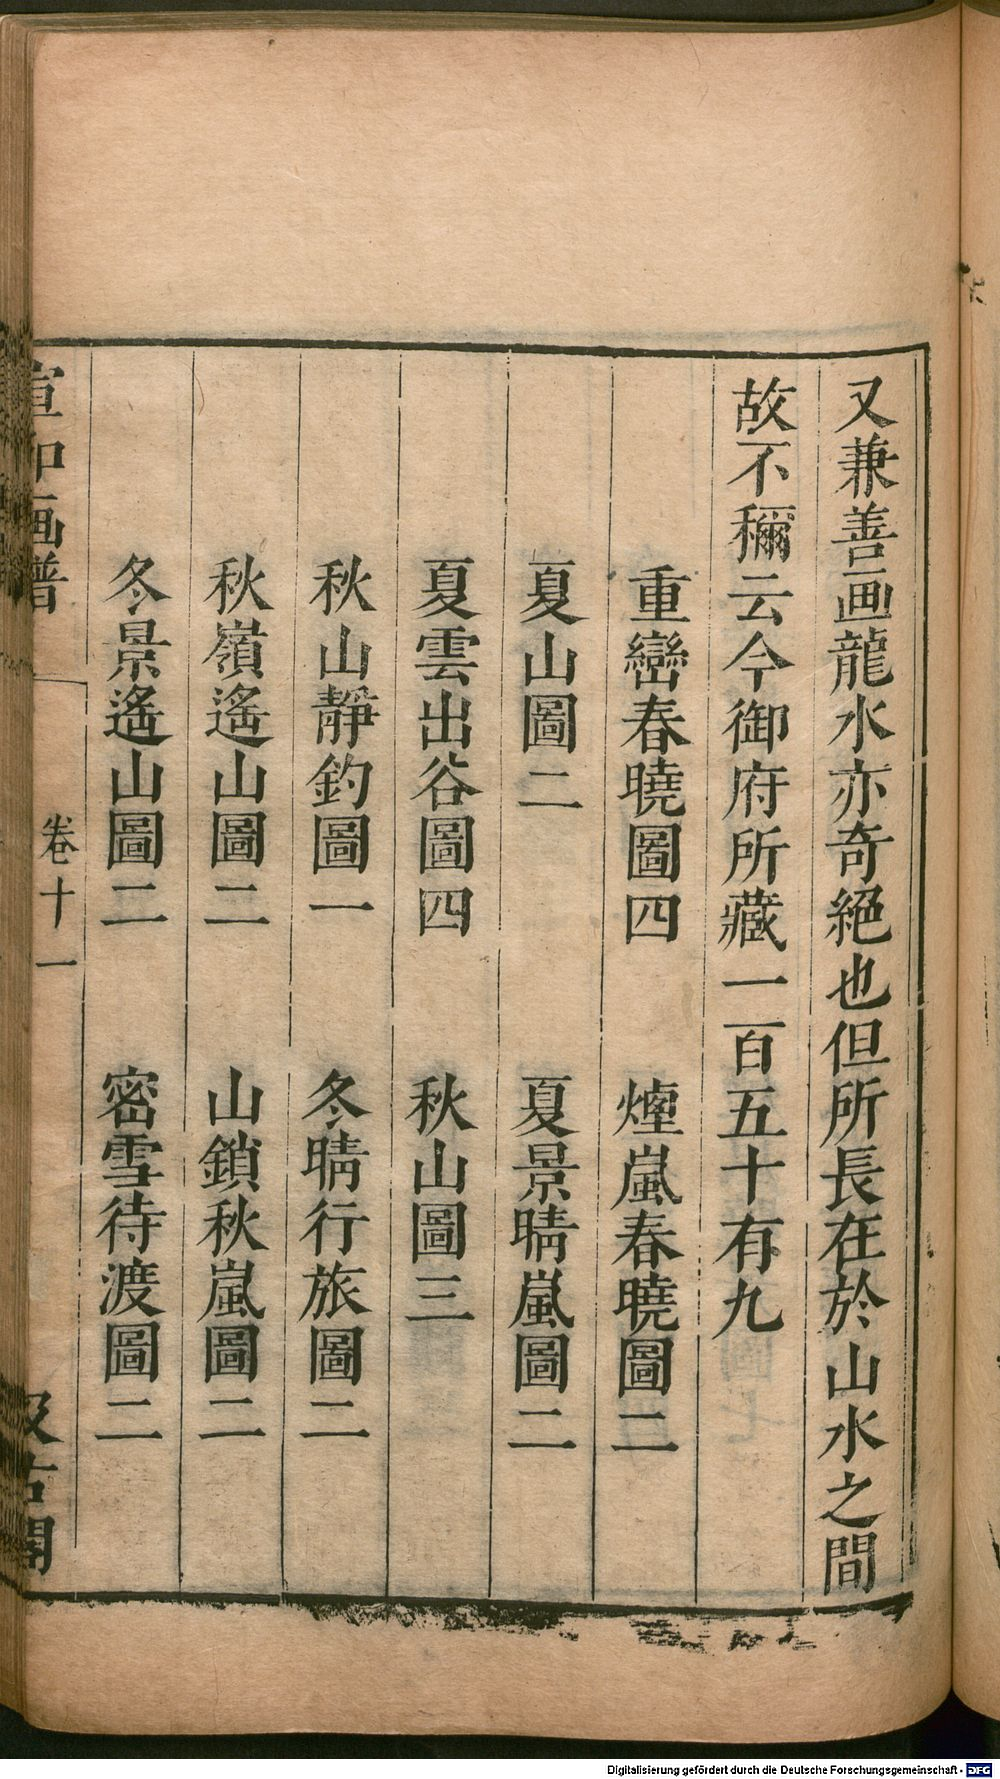 又兼善画龍水亦奇絕也但所長在於山水之間
故不稱云今御府所藏一百五十有九
重巒春曉圖四　煙嵐春曉圖二
夏山圖二　夏景晴嵐圖二
夏雲出谷圖四　秋山圖三
秋山靜釣圖一　冬晴行旅圖二
秋嶺遙山圖二　山鎖秋嵐圖二
冬景遙山圖二　密雪待渡圖二
宣和画譜　卷十一　汲古閣
Digitalisierung gefördert durch die Deutsche Forschungsgemeinschaft - DFG